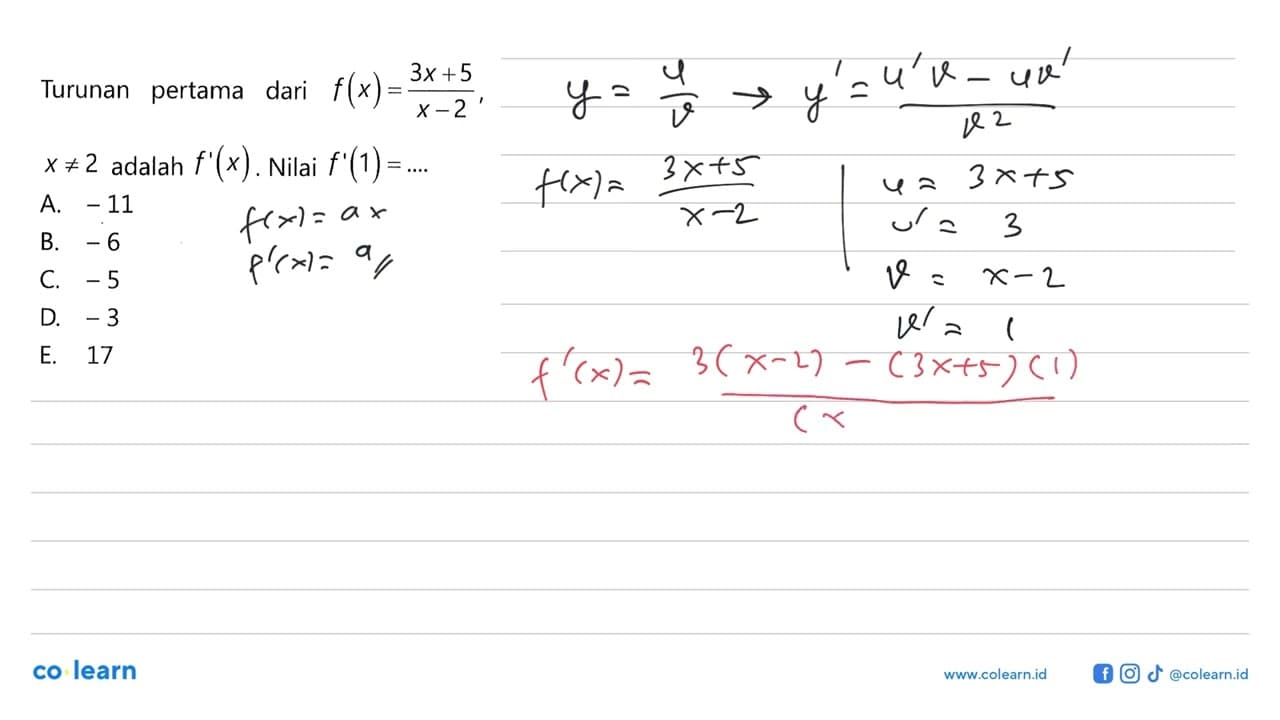 Turunan pertama dari f(x) = (3x+5)/(x-2),
x ≠ 2 adalah f'(x). Nilai f'(1) = ....
A. - 11
B. - 6
C. - 5
D. - 3
E. 17
f(x) = ax
f'(x) = a
y = u/v → y' = (u'v - uv')/v2
f(x) = (3x+5)/(x-2)
u = 3x+5
u' = 3
v = x-2
v' = 1
f'(x) = 3(x-2) - (3x+5)(1)
(x
co learn
www.colearn.id
@colearn.id